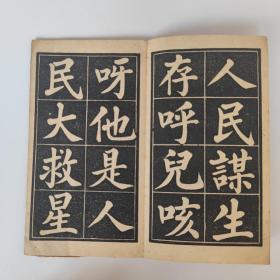 人民謀生
存呼兒咳
呀他是人
民大救星